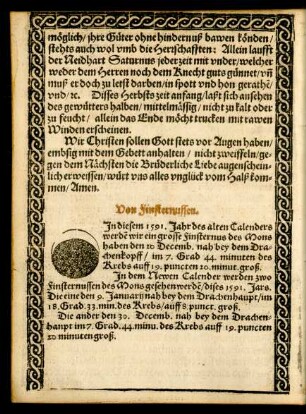 möglich/ jhre Güter ohne hindernuß bawen könden/
stehts auch wol vmb die Herschafften: Allein laufft
der Neidhart Saturnus jederzeit mit vnder/ welcher
weder dem Herren noch dem Knecht guts günnet/ vñ
muß er doch zu letst darben/ in spott vnd hon gerathē/
vnd/ ꝛc. Disses Herbsts zeit anfang/ last sich ansehen
des gewütters halben/ mittelmässig/ nicht zu kalt oder
zu feucht/ allein das Ende möcht trucken mit rawen
Winden erscheinen.
Wir Christen sollen Gott stets vor Augen haben/
embsig mit dem Gebett anhalten/ nicht zweiffeln/ ge-
gen dem Nächsten die Brüderliche Liebe augenschein-
lich erweissen/ würt vns alles vnglück vom Halß kom-
men/ Amen.
Von Finsternussen.
In diesem 1591. Jahr des alten Calenders
werdē wir ein grosse Finsternus des Mons
haben den 20 Decemb. nah bey dem Dra-
chenkopff/ im 7. Grad 44. minuten des
Krebs auff 19. puncten 20. minut. groß.
In dem Newen Calender werden zwo
Finsternussen des Mons gesehen werdē/ disēs 1591. Jars.
Die eine den 9. Januarij nah bey dem Drachenhaupt/ im
18. Grad. 33. min. des Krebs/ auff 8. punct. groß.
Die ander den 30. Decemb. nah bey dem Drachen-
haupt im 7. Grad. 44. minu. des Krebs auff 19. puncten
20 minuten groß.